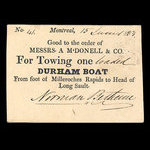 No. 41. Montreal, 15 June 183
Good to the order of
MESSRS A McDONELL & CO.
For Towing one loaded
DURHAM BOAT
From foot of Milleroches Rapids to Head of
Long Sault.
Norman Bethune